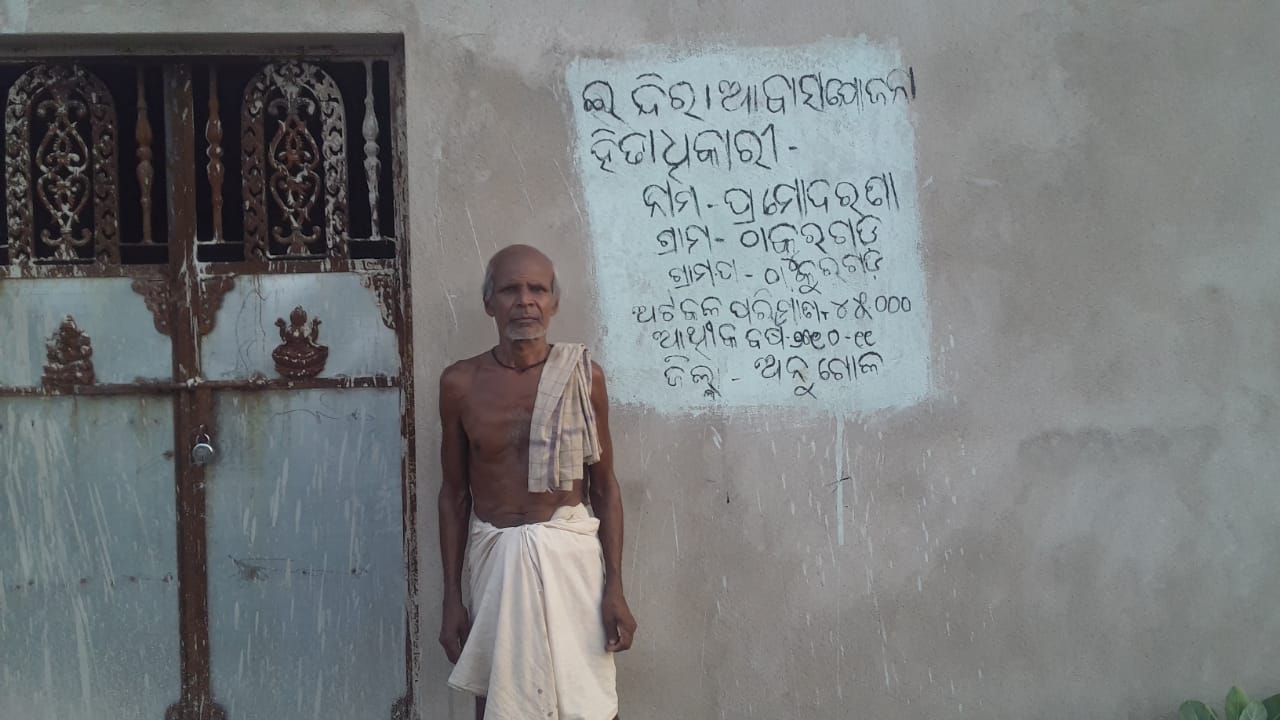 ଇନ୍ଦିରା ଆବାସ ଯୋଜନା
ହିତାଧିକାରୀ -
ନାମ - ପ୍ରମୋଦ ରଣା
ଗ୍ରାମ - ଠାକୁରଗଡ଼
ଗ୍ରା.ପ - ଠାକୁରଗଡ଼
ଅଟକଳ ପରିମାଣ - ୪୫୦୦୦
ଆର୍ଥୀକ ବର୍ଷ - ୨୦୧୦-୧୧
ଜିଲ୍ଲା - ଅନୁଗୋଳ